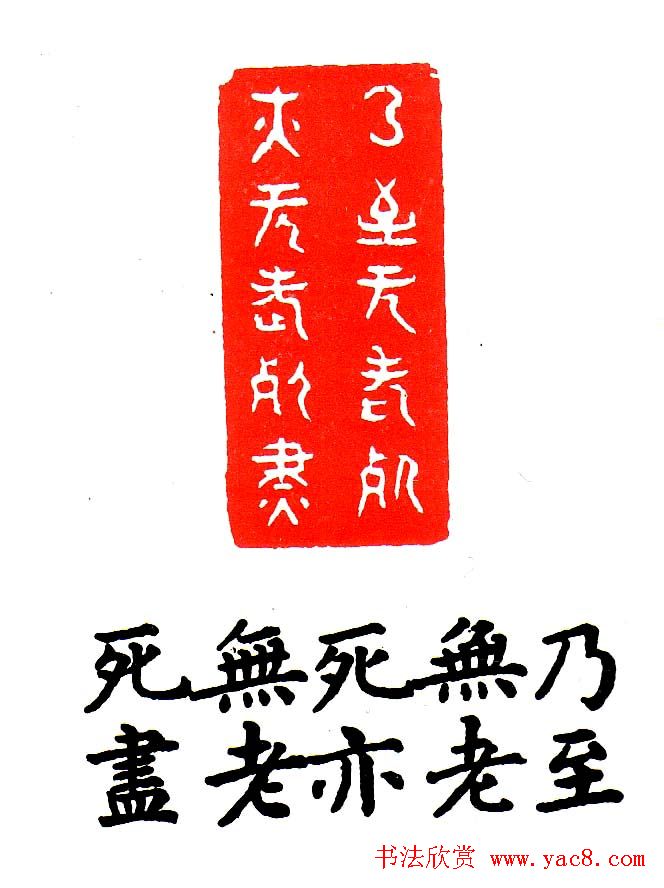 乃至无老死
亦无老死盡
乃至
無老
死亦
無老
死盡
书法欣赏 www.yac8.com